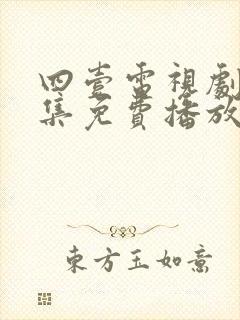 四壹雷視劇
集免費播放
東方玉如意